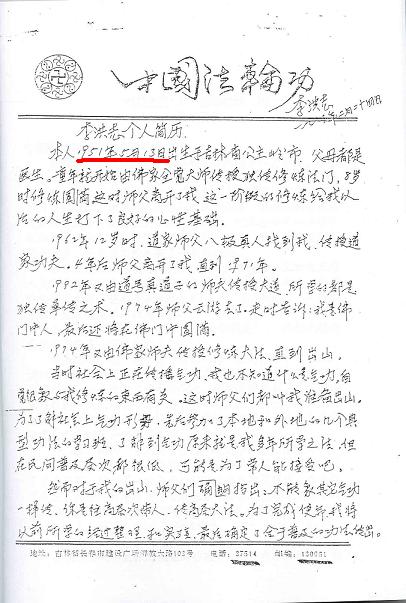 中國法輪功
李洪志
李洪志个人简历
本人1951年5月13日出生于吉林省公主岭市，父母都是
医生。童年就开始由佛家全觉大师传授独传修炼法门，8岁
时修炼圆满这时师父离开了我，这一阶段的修炼给我以
后的人生打下了良好的心性基础。
1962年12岁时，道家师父八极真人找到我，传授道
家功夫。4年后师父离开了我，直到1971年。
1972年又由道号真道子的师父传授大道，所学的都是
独传单传之术。1974年师父云游去了。走时告诉：我是佛
门中人，最后还将在佛门中圆满。
1974年又由佛家师父传授修炼大法，直到出山。
当时社会上正在传播气功，我也不知道什么是气功，自
我修炼的东西有关。这时师父们都叫我准备出山。
为了了解社会上气功形势，先后参加了本地和外地的几个典
型功法的学习班，了解到气功原来就是我多年所学之法，但
在民间普及层次都很低，可能是为了常人能接受吧。
然而对于我的出山，师父们明确指出：不能象其它气功
一样传，你是往高层次带人，传高层大法。为了完成使命我将
以前所学的经过整理和实践，最后确定了合于普及的功法传出。
地址：吉林省长春市建设广场解放大路102号 电话：37514 邮编：130051